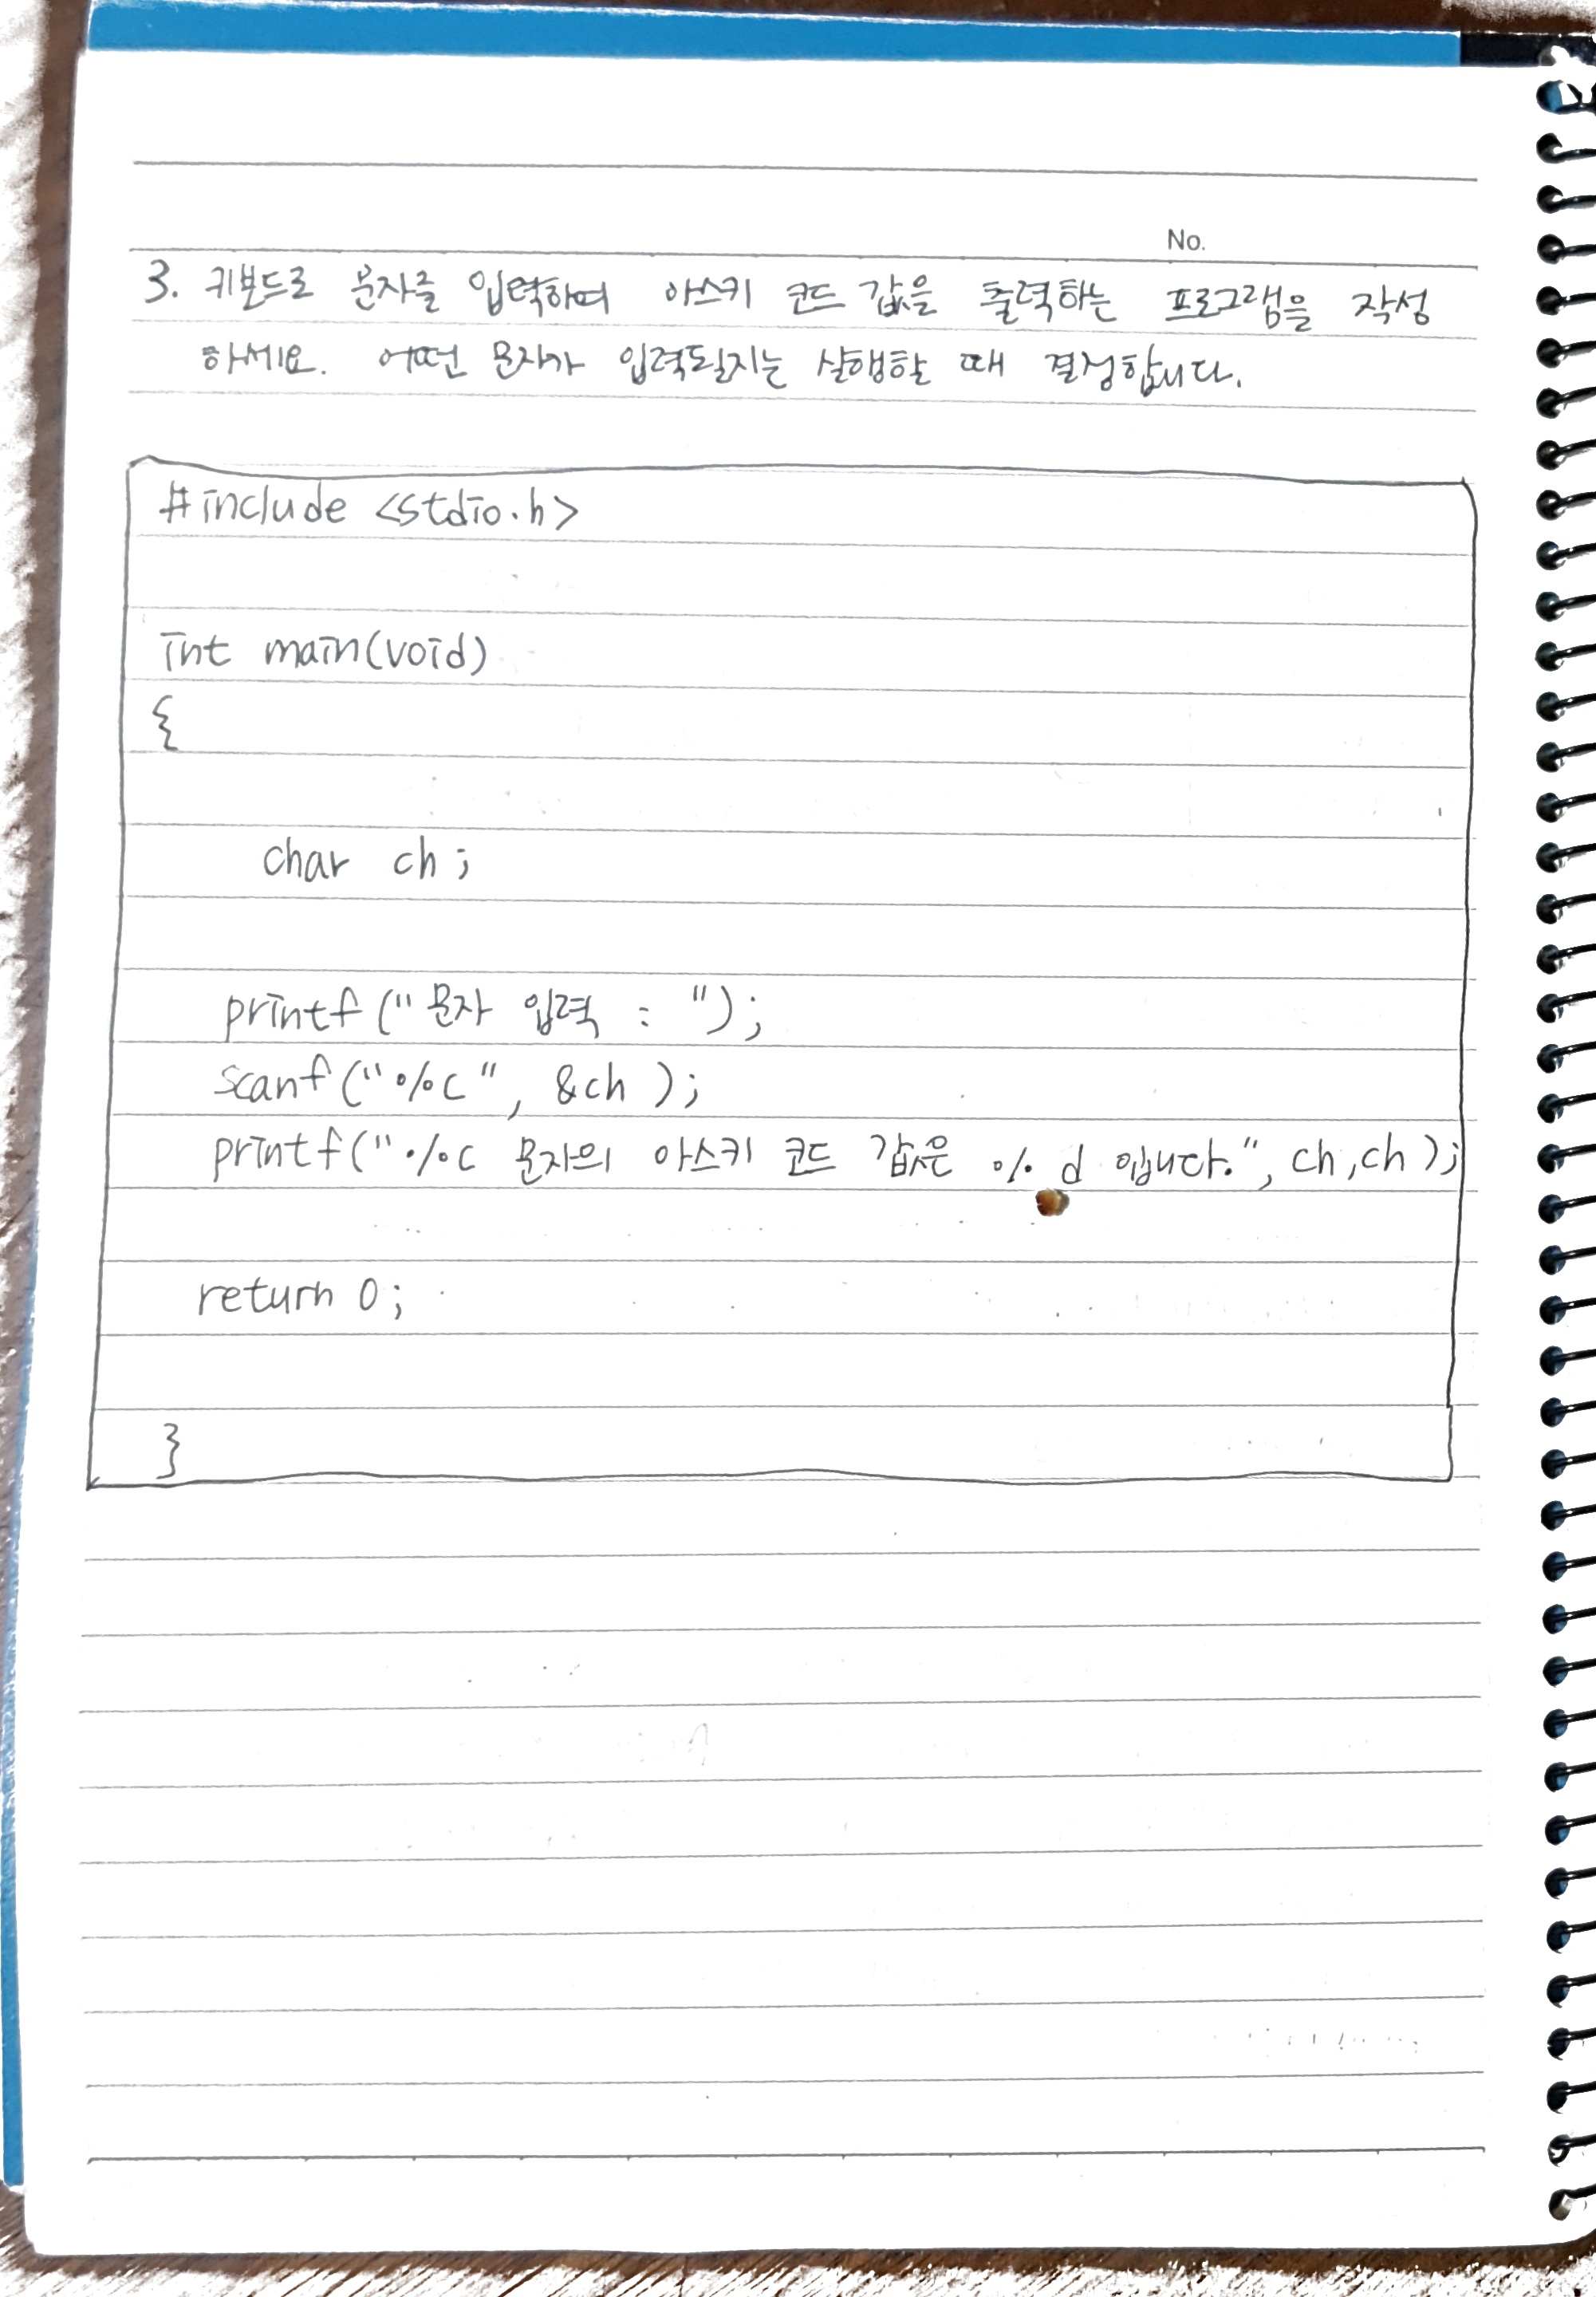 No.
3. 키보드로 문자를 입력하며 아스키 코드 값을 출력하는 프로그램을 작성
하세요. 어떤 문자가 입력될지는 실행할 때 결정합니다.
#include <stdio.h>
int main(void)
{
char ch;
printf("문자 입력 : ");
scanf("%c", &ch );
printf("%c 문자의 아스키 코드 값은 %d 입니다.", ch,ch );
return 0;
}